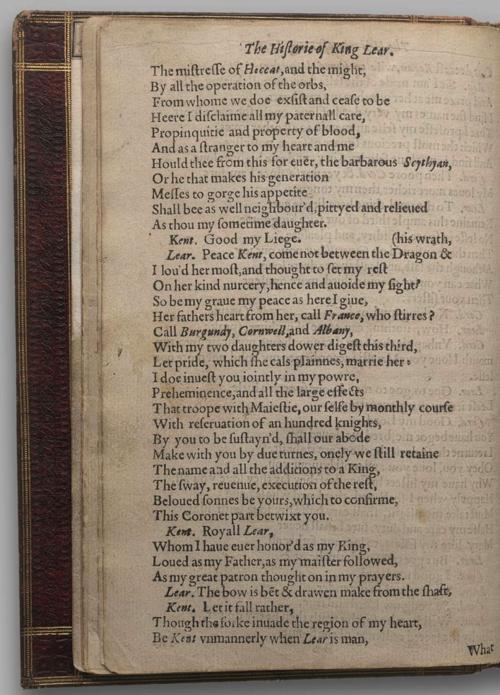 The Historie of King Lear.
The mistresse of Heccat, and the might,
By all the operation of the orbs,
From whome we doe exsist and cease to be
Heere I disclaime all my paternall care,
Propinquitie and property of blood,
And as a stranger to my heart and me
Hould thee from this for euer, the barbarous Scythyan,
Or he that makes his generation
Messes to gorge his appetite
Shall bee as well neighbour'd, pittyed and relieued
As thou my sometime daughter.
Kent. Good my Liege. (his wrath,
Lear. Peace Kent, come not between the Dragon &
I lou'd her most, and thought to set my rest
On her kind nurcery, hence and auoide my sight?
So be my graue my peace as here I giue,
Her fathers heart from her, call France, who stirres?
Call Burgundy, Cornwell, and Albany,
With my two daughters dower digest this third,
Let pride, which she cals plainnes, marrie her:
I doe inuest you iointly in my powre,
Preheminence, and all the large effects
That troope with Maiestie, our selfe by monthly course
With reseruation of an hundred knights,
By you to be sustayn'd, shall our abode
Make with you by due turnes, onely we still retaine
The name and all the addicions to a King,
The sway, reuenue, execution of the rest,
Beloued sonnes be yours, which to confirme,
This Coronet part betwixt you.
Kent. Royall Lear,
Whom I haue euer honor'd as my King,
Loued as my Father, as my maister followed,
As my great patron thought on in my prayers.
Lear. The bow is bēt & drawen make from the shaft,
Kent. Let it fall rather,
Though the forke inuade the region of my heart,
Be Kent vnmannerly when Lear is man,
What